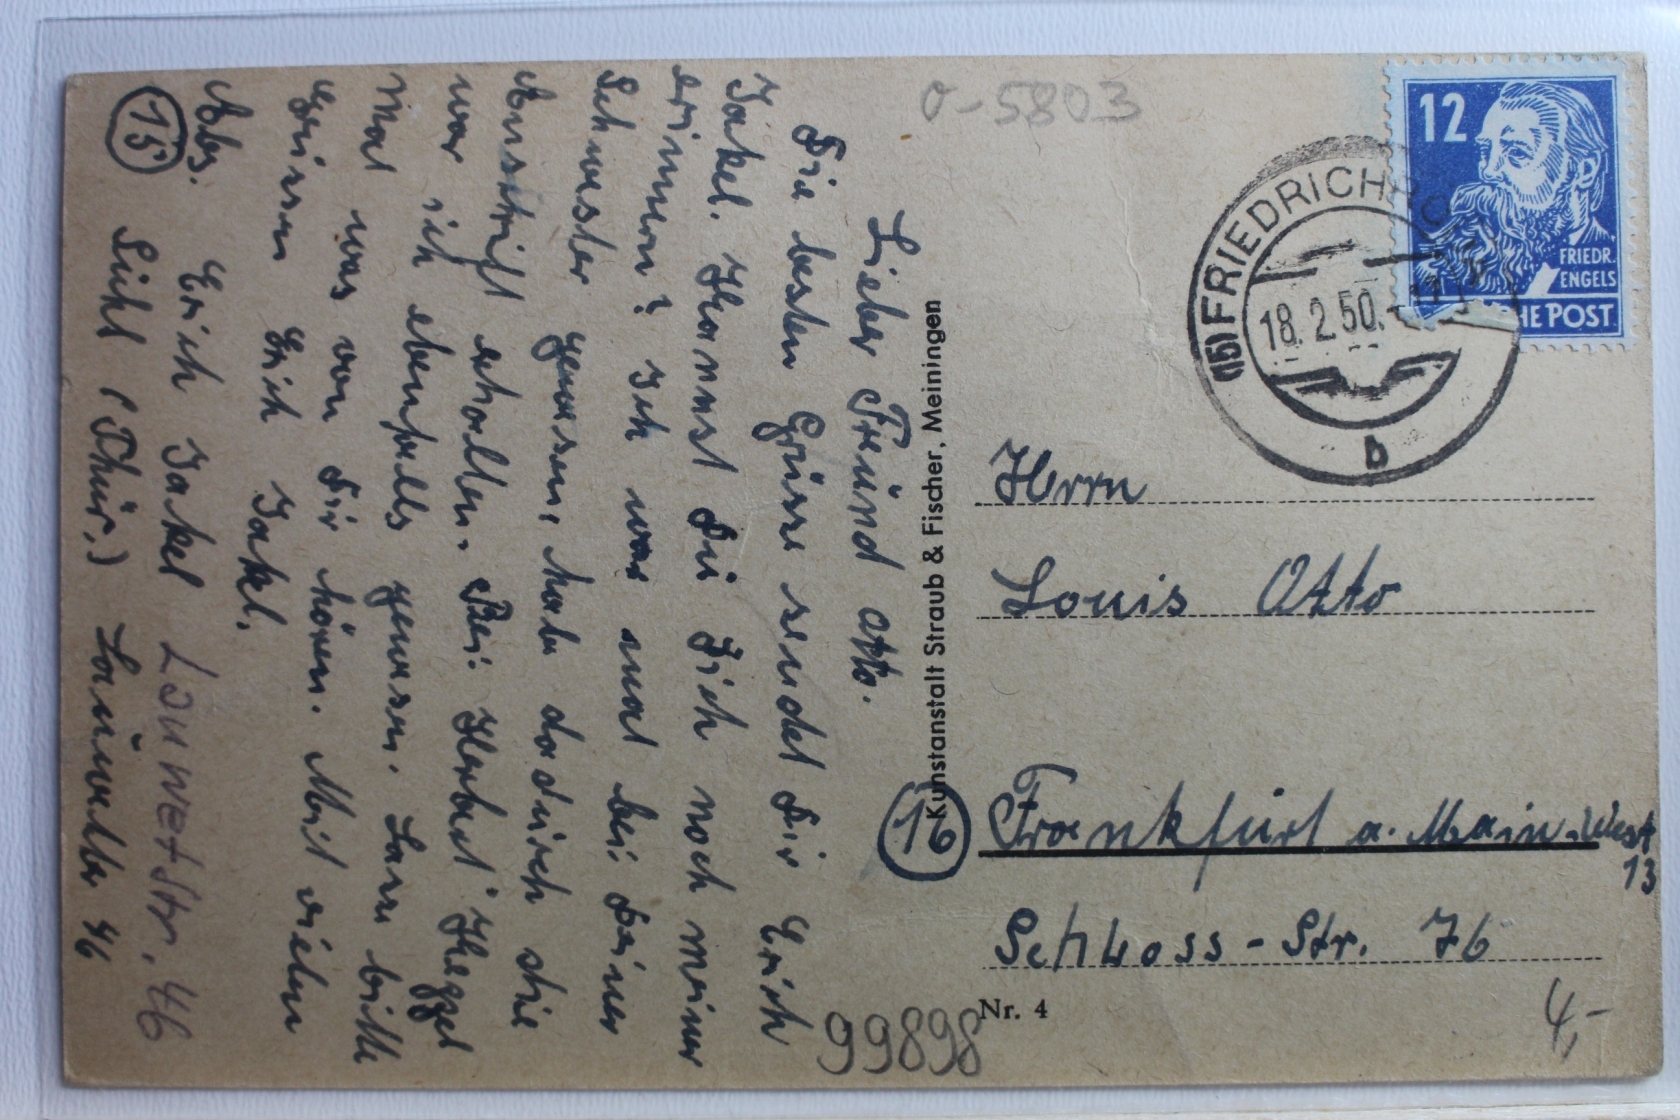 o-5803
12
FRIEDR.
ENGELS
HE POST
(15) FRIEDRICHR
18.2.50.
b
Lieber Freund Otto.
Die besten Grüsse sendet Dir Erich
Jakel. Kannst Du Dich noch meiner
erinnern? Ich war mal bei Deiner
Schwester gewesen, habe dadurch die
Anschrift erhalten. Bei Herbert
war ich ebenfalls gewesen. Lass bitte
Mal was von Dir hören. Mit vielen
Grüssen Erich Jakel.
Abs. Erich Jakel Lauwetstr. 46
(15) Suhl (Thür.) Lauwetter 46
Kunstanstalt Straub & Fischer, Meiningen
Herrn
Louis Otto
(16) Frankfurt a. Main-West
13
Schloss-Str. 76
Nr. 4
99898
4,-